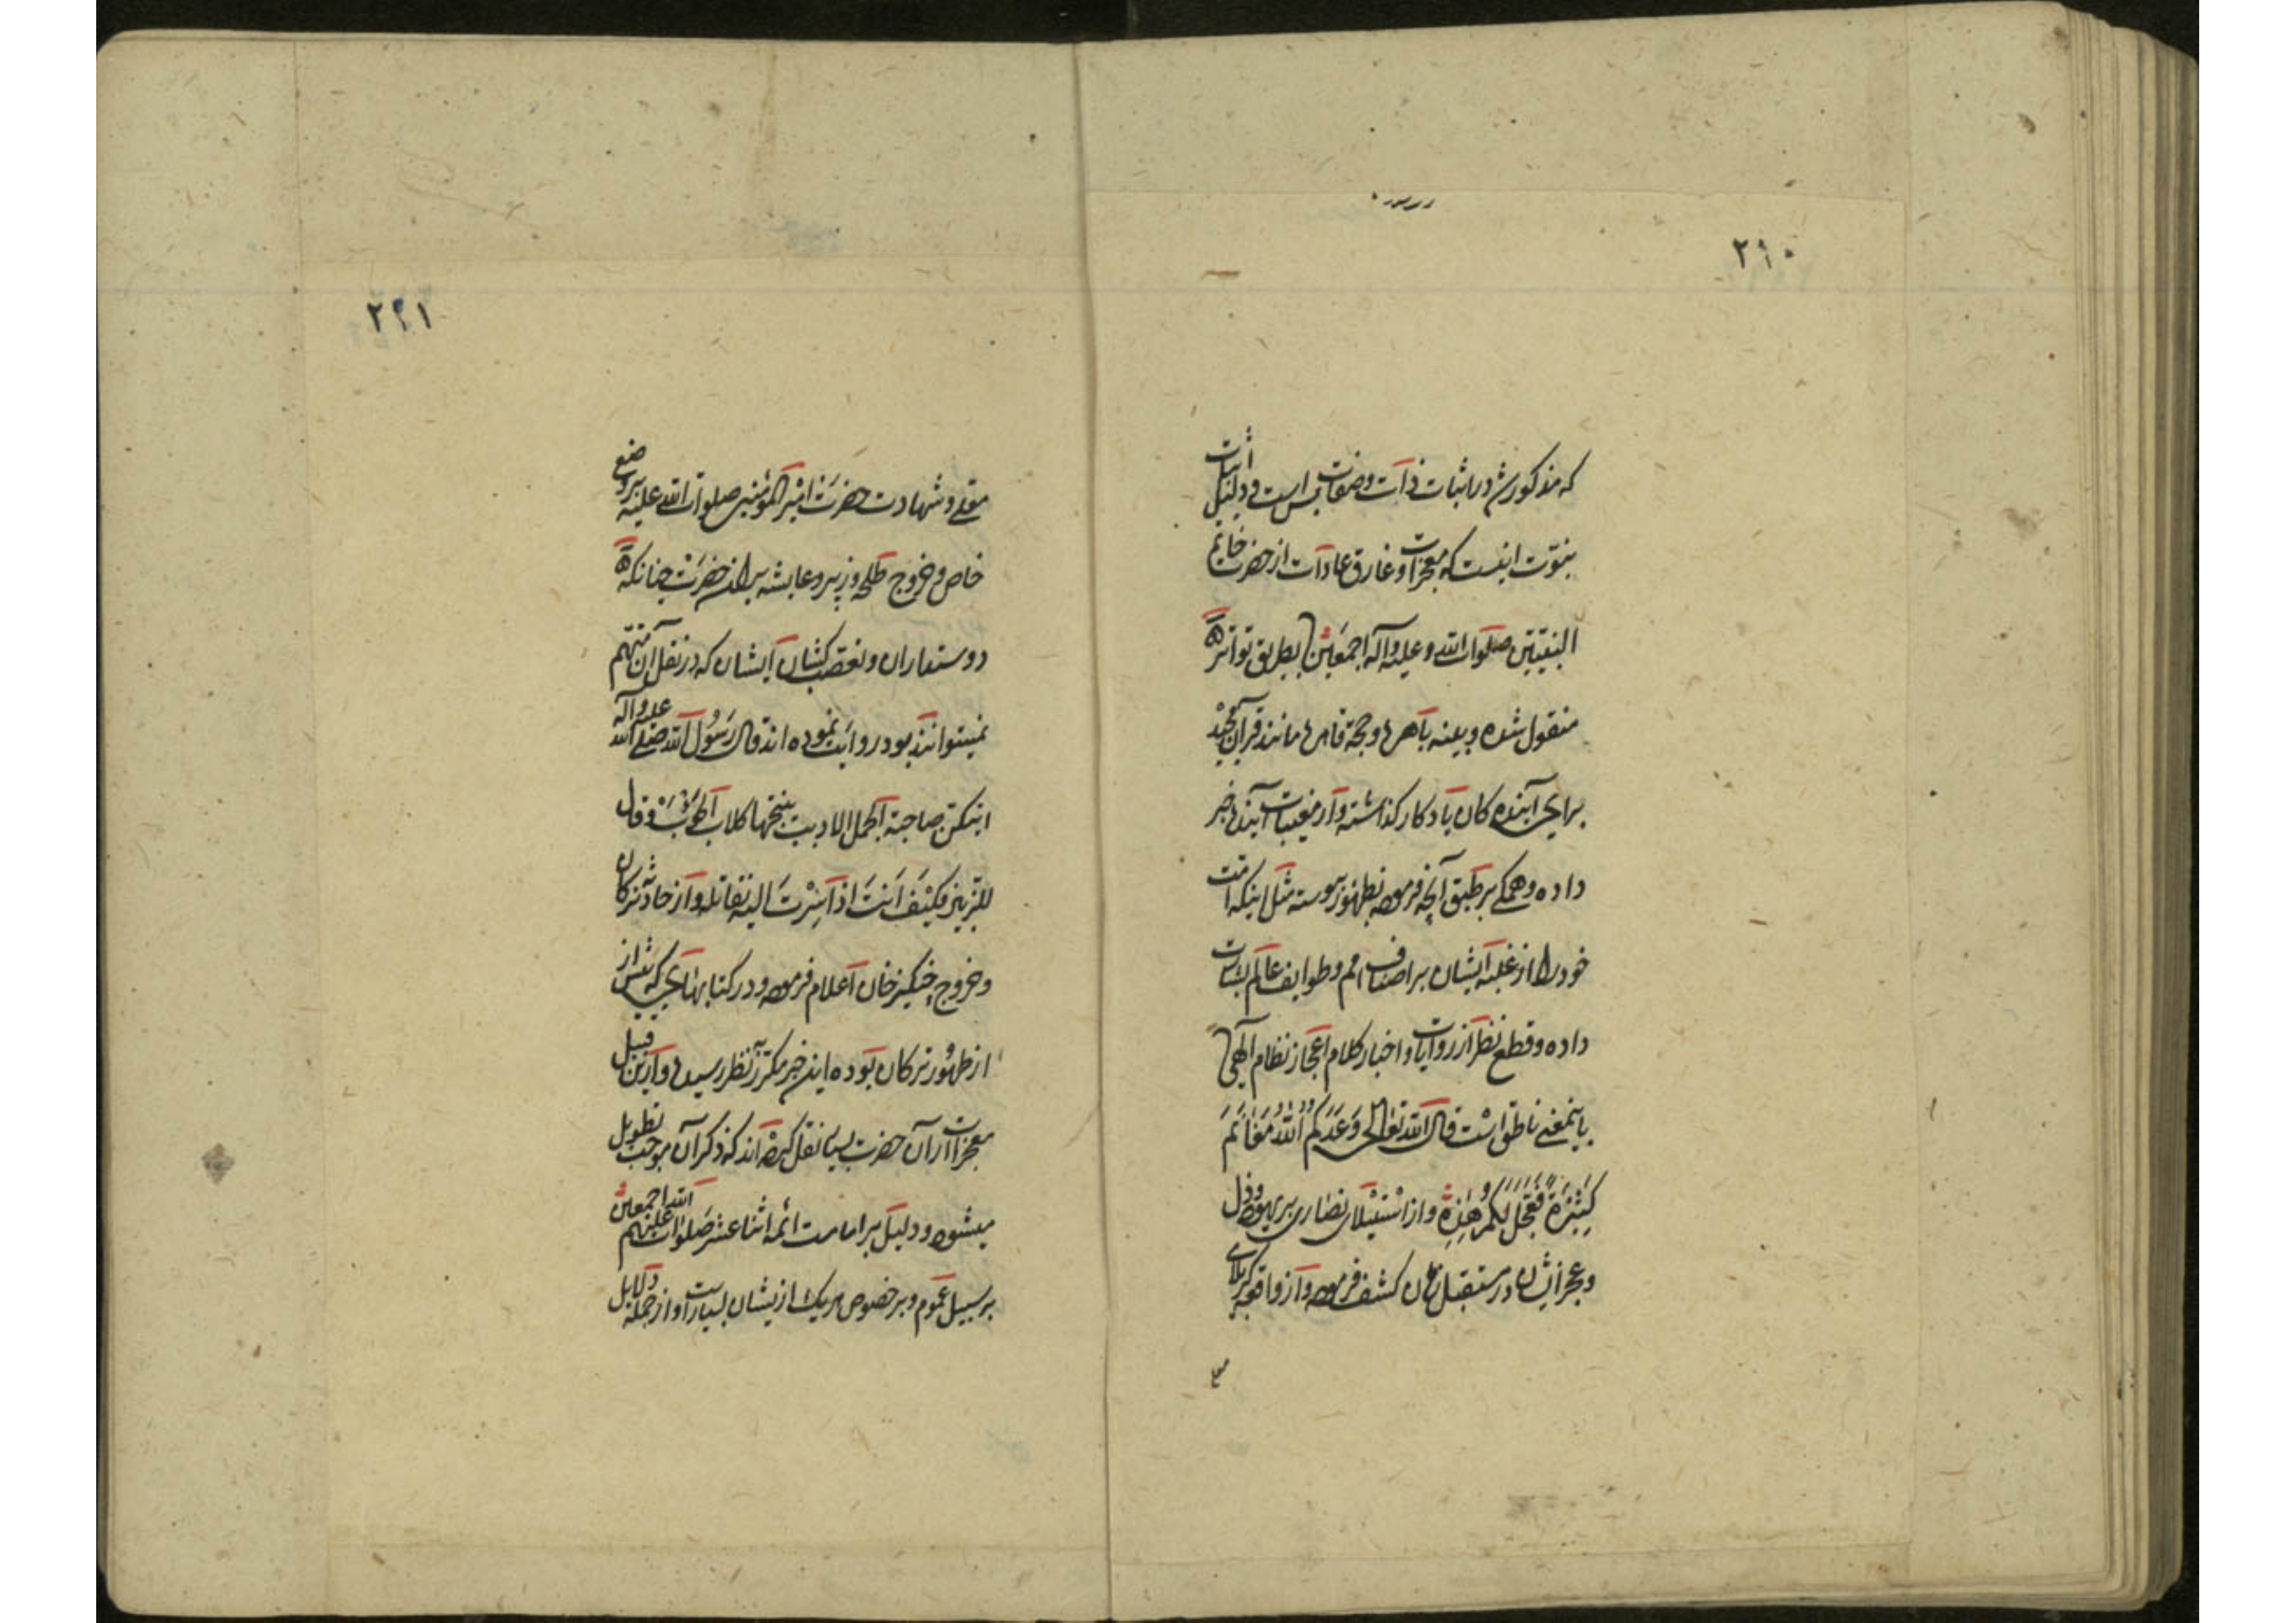 ۲۹۰
که مذکور شد در اثبات ذات و صفات بس است و دلیل اثبات
نبوّت اینست که معجزات و خارق عادات از حضرت خاتم
النبیّین صلوات الله وعلیه وآله اجمعین بطریق تواتر
منقول شده و بینه باهره و حجة قاهره مانند قرآن مجید
برای آینده کان یادکار کذاشته و از مغیبات آینده خبر
داده و همکی بر طبق آنچه فرموده بظهور پیوسته مثل اینکه امّت
خود را از غلبه ایشان بر اصناف امم و طوایف عالم بشارت
داده و قطع نظر از روایات و اخبار کلام اعجاز نظام آلهی
باینمعنی ناطق است قال الله تعالی وَعَدَکُم اللهُ مَغَانِمَ
کَثِیرَةً فَعَجَّلَ لَکُم هٰذِهِ و از استیلای نصاری بر یهود و ذل
و عجز ایشان در مستقبل زمان کشف فرموده و از واقعه کربلای
۲۹۱
معلی و شهادت حضرت امیر المؤمنین صلوات الله علیه بر وضع
خاص و خروج طلحه و زبیر و عایشه بر آن حضرت چنانکه
دوستداران و تعصب کشان ایشان که در نقل آن متهم
نمیتوانند بود روایت نموده اند قال رَسُول الله صلی الله علیه وآله
ایتکن صاحبة الجمل الادبب ینبحها کلاب الحوئب و قال
للزبیر فکیف اَنتَ اذا سِرْتَ الیه تقاتله و از حادثه ترکان
و خروج چنکیز خان اعلام فرموده و در کتابهایی که پیش از
از ظهور ترکان بوده این خبر مکرّر بنظر رسیده و ازین قبیل
معجزات از آن حضرت بسیار نقل کرده اند که ذکر آن موجب تطویل
میشود و دلیل بر امامت ائمه اثنا عشر صلوات الله علیهم اجمعین
بر سبیل عموم و بر خصوص هریک از یشان بسیار است و از جمله دلایل